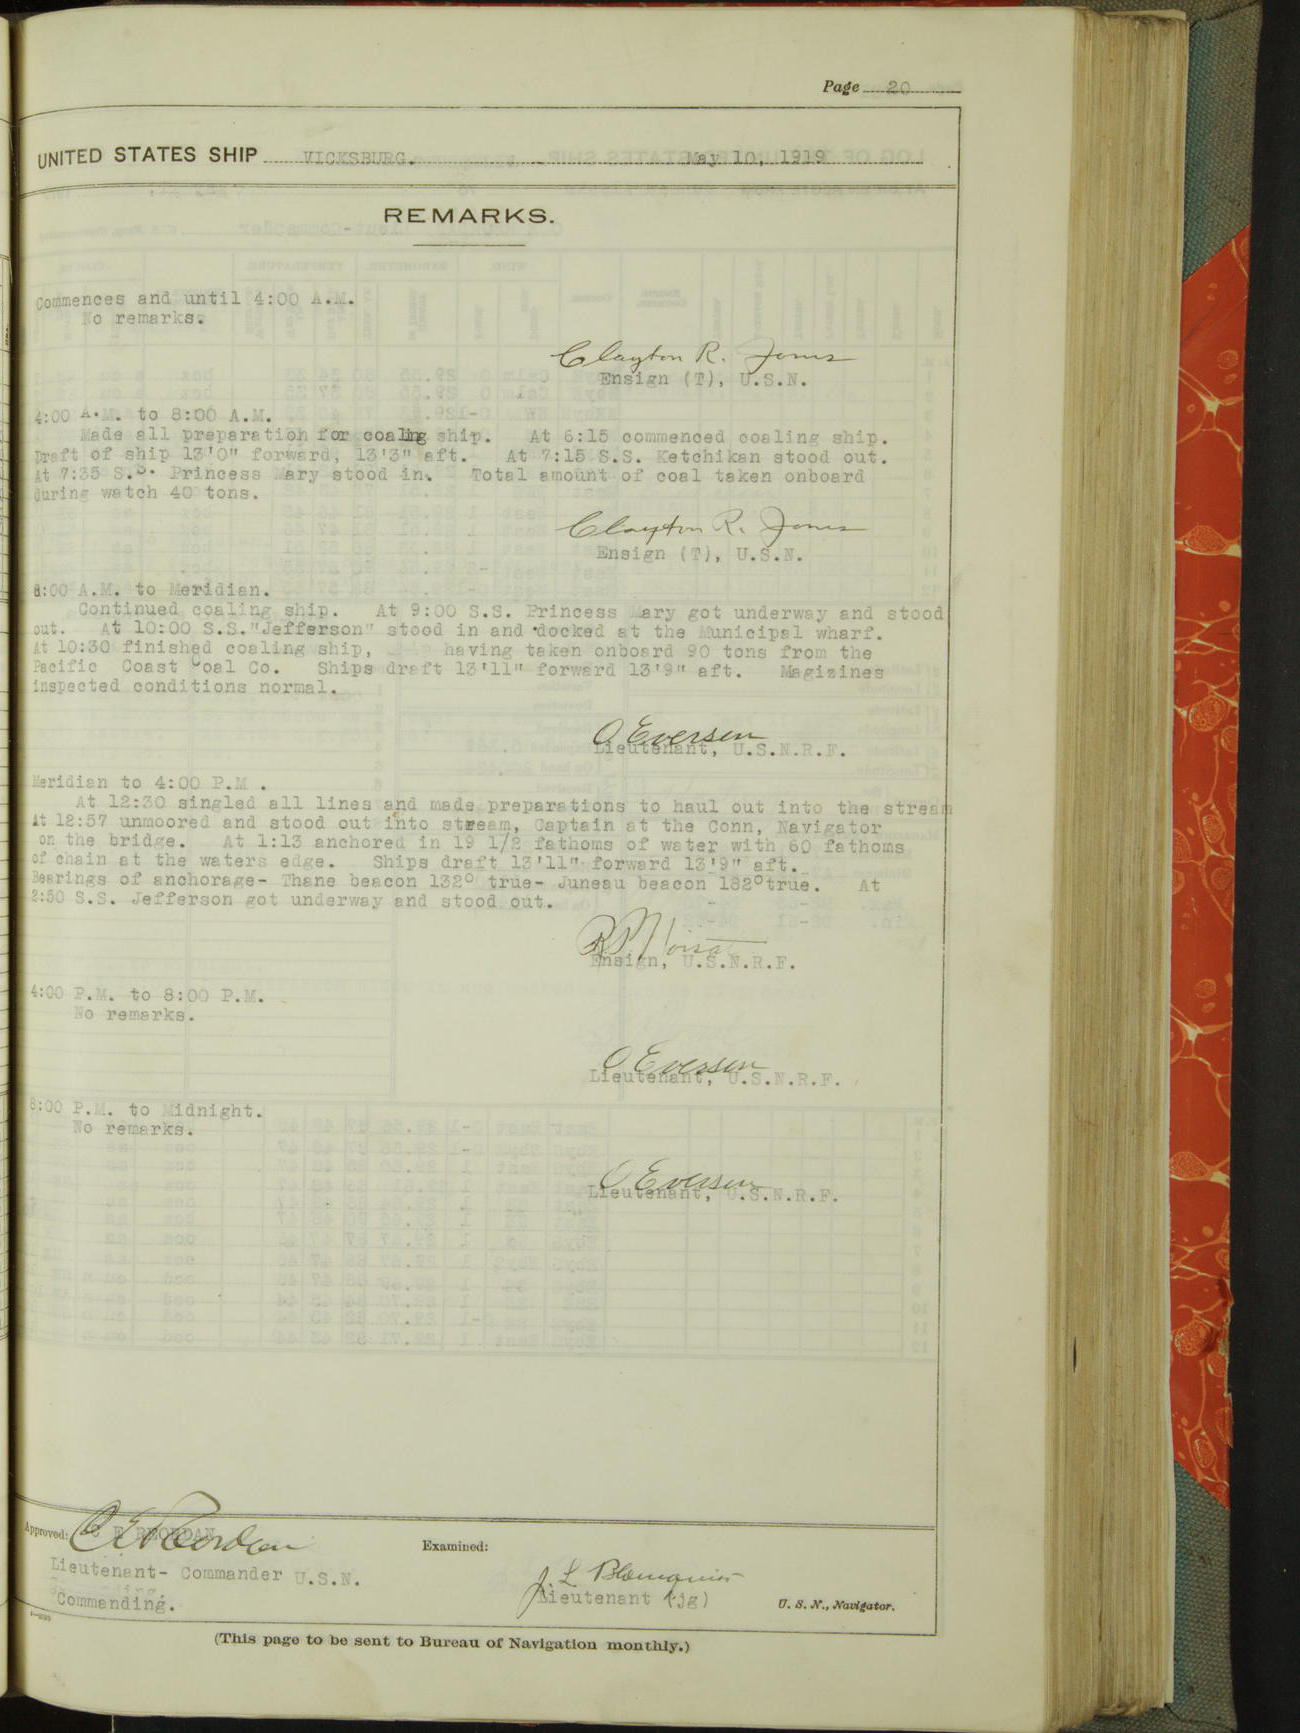 Page 20
UNITED STATES SHIP VICKSBURG. May 10, 1919
REMARKS.
Commences and until 4:00 A.M.
No remarks.
Clayton R. Jones
Ensign (T), U.S.N.
4:00 A.M. to 8:00 A.M.
Made all preparation for coaling ship. At 6:15 commenced coaling ship.
Draft of ship 13'0" forward, 13'3" aft. At 7:15 S.S. Ketchikan stood out.
At 7:35 S.S. Princess Mary stood in. Total amount of coal taken onboard
during watch 40 tons.
Clayton R. Jones
Ensign (T), U.S.N.
8:00 A.M. to Meridian.
Continued coaling ship. At 9:00 S.S. Princess Mary got underway and stood
out. At 10:00 S.S."Jefferson" stood in and docked at the Municipal wharf.
At 10:30 finished coaling ship, having taken onboard 90 tons from the
Pacific Coast Coal Co. Ships draft 13'11" forward 13'9" aft. Magizines
inspected conditions normal.
O Eversen
Lieutenant, U.S.N.R.F.
Meridian to 4:00 P.M .
At 12:30 singled all lines and made preparations to haul out into the stream
At 12:57 unmoored and stood out into stream, Captain at the Conn, Navigator
on the bridge. At 1:13 anchored in 19 1/2 fathoms of water with 60 fathoms
of chain at the waters edge. Ships draft 13'11" forward 13'9" aft.
Bearings of anchorage- Thane beacon 132° true- Juneau beacon 182°true. At
2:50 S.S. Jefferson got underway and stood out.
Ensign, U.S.N.R.F.
4:00 P.M. to 8:00 P.M.
No remarks.
O Eversen
Lieutenant, U.S.N.R.F.
8:00 P.M. to Midnight.
No remarks.
O Eversen
Lieutenant, U.S.N.R.F.
Approved: C E REORDAN
Lieutenant- Commander U.S.N.
Commanding.
Examined:
J. L Blomquist
Lieutenant (jg) U. S. N., Navigator.
(This page to be sent to Bureau of Navigation monthly.)